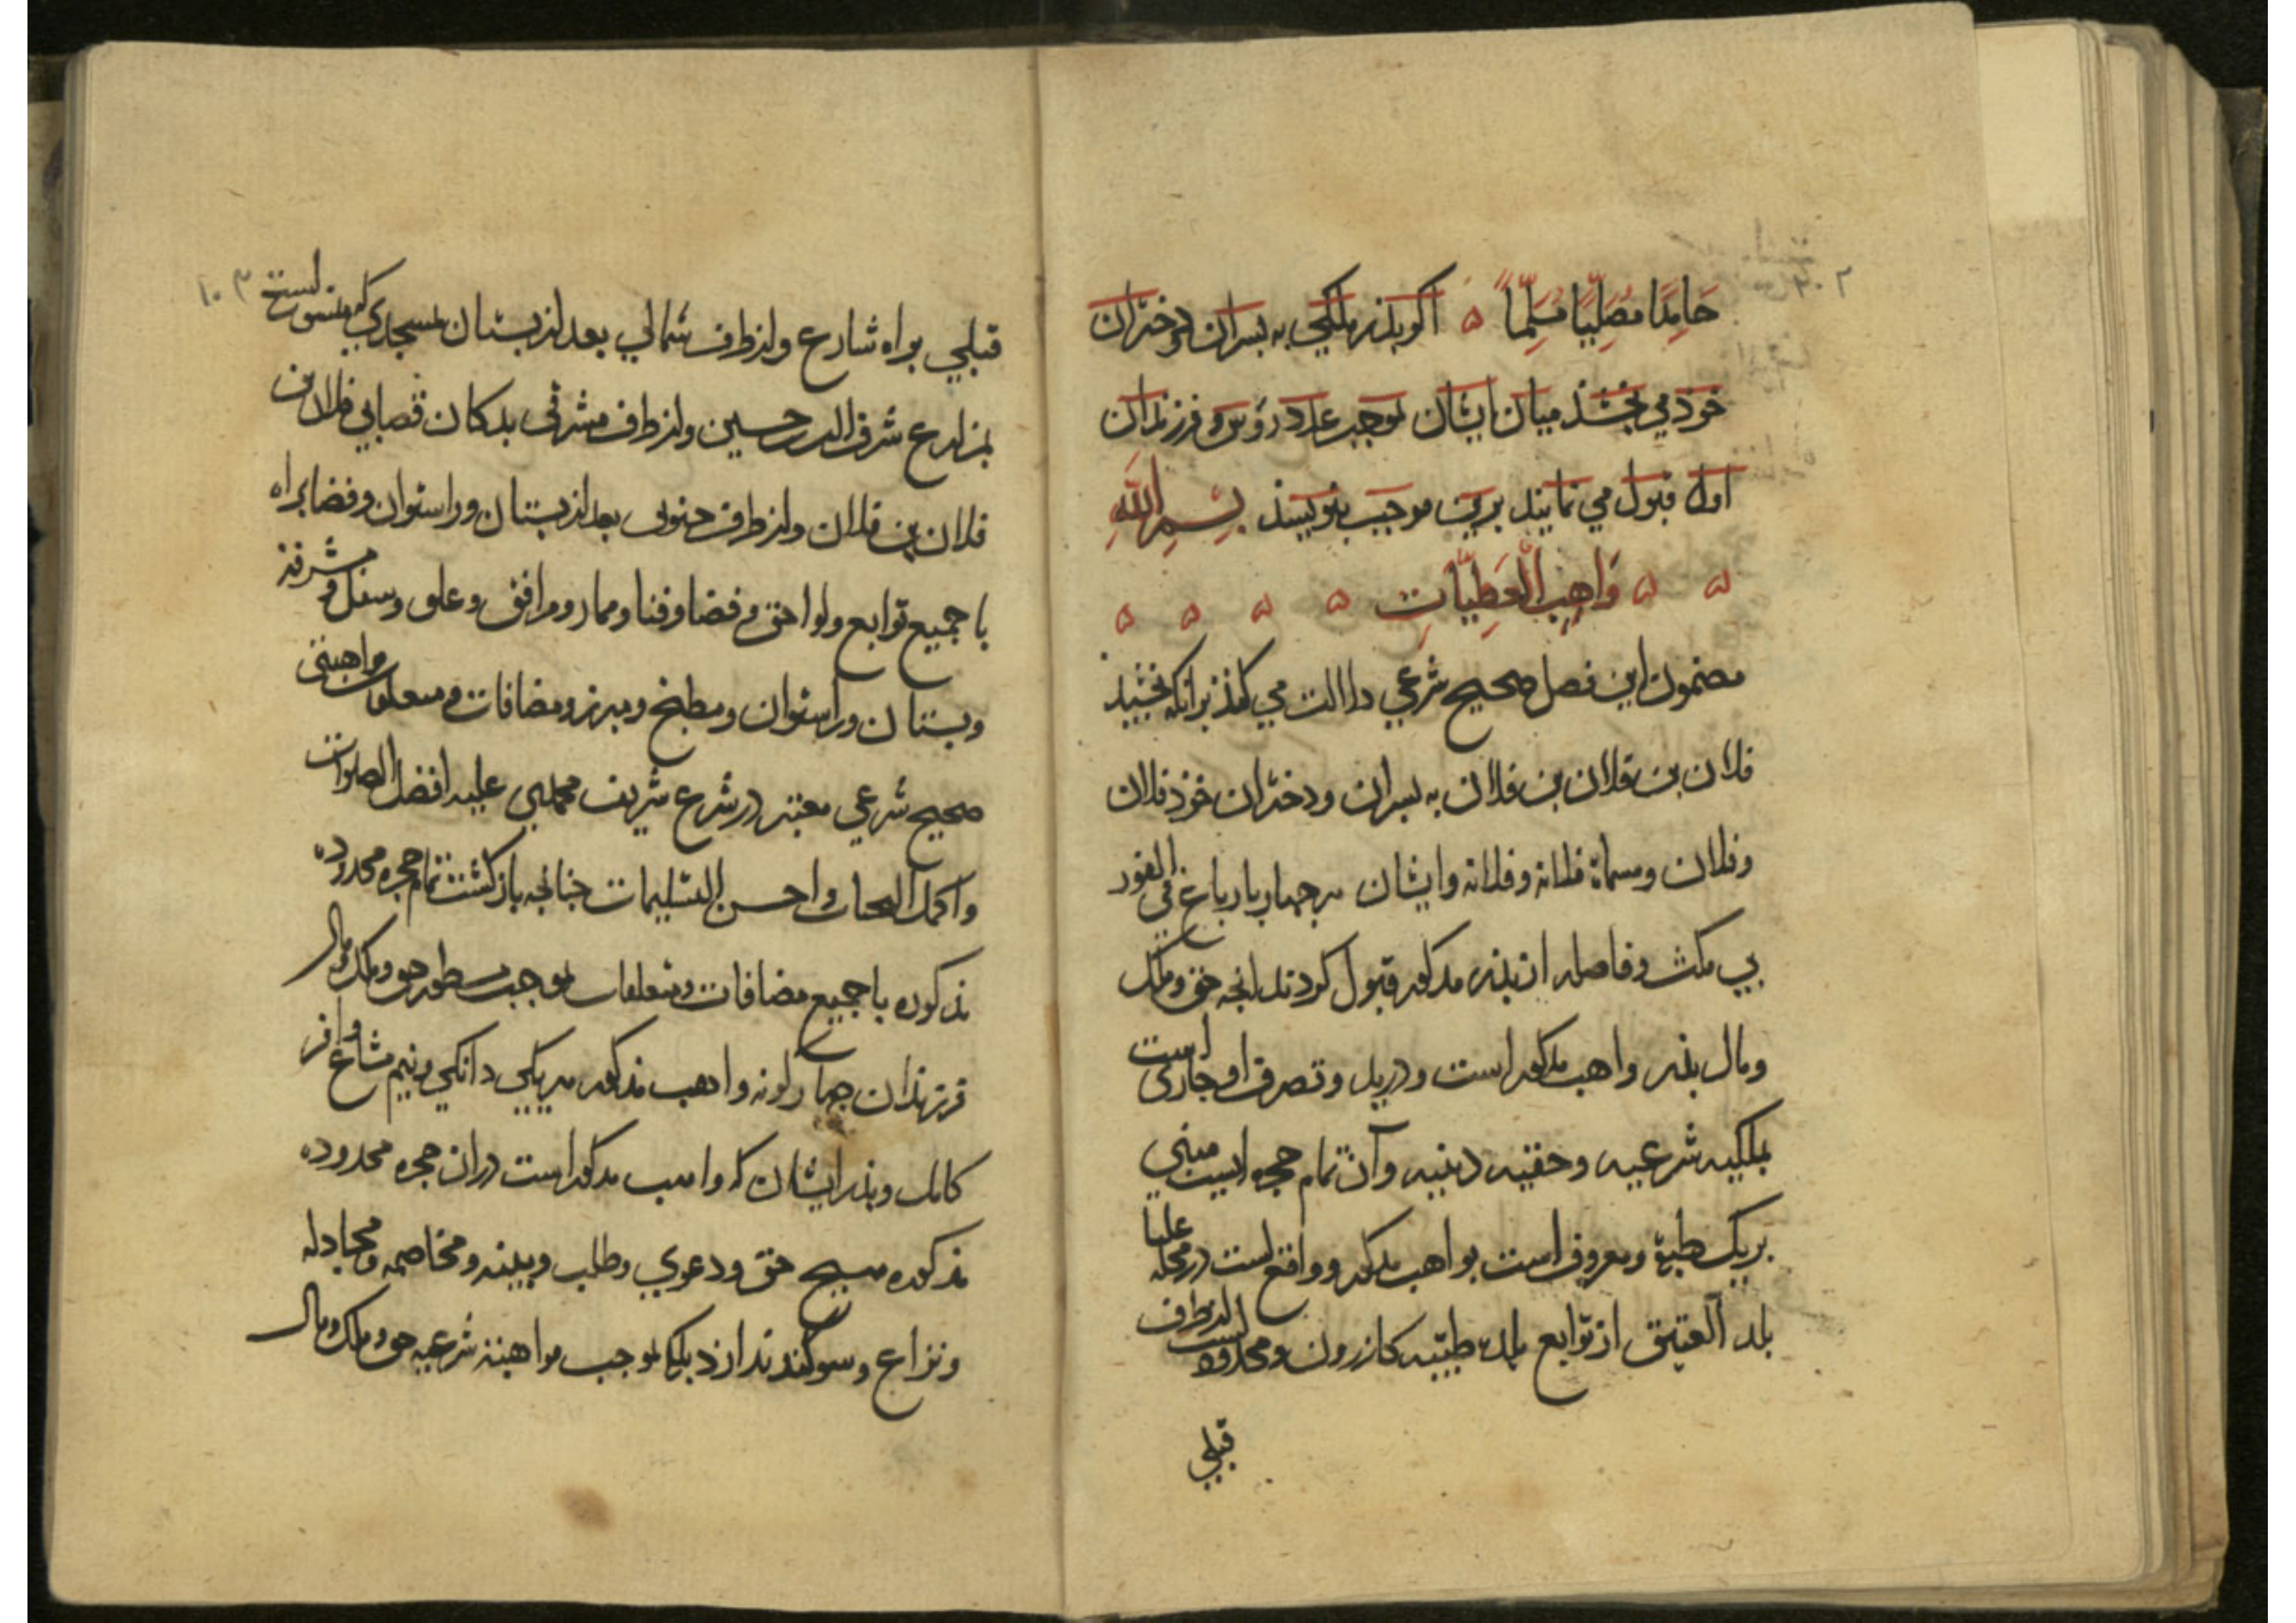 حَامِدًا مُصَلِّيًا مُسَلِّمًا ه اکر بذر ملکي به بسران و دختران
خوذ مي بخشذ ميان ايشان بموجب عدد رؤس و فرزندان
اول قبول مي نمايند برين موجب بنويسذ بِسْمِ اللّهِ
ه ه وَاهِبِ الْعَطِيَّاتِ ه ه ه ه
مضمون اين فصل صحيح شرعي دلالت مي کند برانکه بخشيد
فلان بن فلان بن فلان به بسران و دختران خوذ فلان
و فلان و مسماة فلانه و فلانه و ايشان هر چهار بارباع في الفور
بي مکث و فاصله از بذر مذکور قبول کردند انجه حق و ملک
و مال بذر واهب مذکور است و در يد و تصرف او جاري است
بملکيه شرعيه و حقيه دينيه و آن تمام حجره ايست مبني
بر يک طبقة و معروف است بواهب مذکور و واقع است در محله عليا
بلد العتيق از توابع بلده طيبه کازرون و محدوده است از طرف
قبلي
١٠٣
قبلي براه شارع و از طرف شمالي بعد از بستان بمسجدي که منسوبست
بمزارع شرف الدين حسين و از طرف مشرقي بدکان قصابي فلان بن
فلان بن فلان و از طرف جنوبي بعد از بستان و راستوان و فضا براه
با جميع توابع و لواحق و فضا و فنا و ممار و مرافق و علو و سفل و مشرفه
و بستان و راستوان و مطبخ و مبرز و مضافات و متعلقات مواهبتي
صحيح شرعي معتبر در شرع شريف محمدي عليه افضل الصلوات
و اکمل التحيات و احسن التسليمات جنانجه بازکشت تمام حجره محدوده
مذکوره با جميع مضافات و متعلقات بموجب مسطور حق و ملک و مال
فرزندان جهارکونه واهب مذکور هر يکي دانکي و نيم مشاع وافر
کامل و بذر ايشان که واهب مذکور است در ان حجره محدوده
مذکوره هيج حق و دعوي و طلب و بينه و مخاصمه و مجادله
و نزاع و سوکند ندارذ بلکه بموجب مواهبه شرعيه حق و ملک و مال